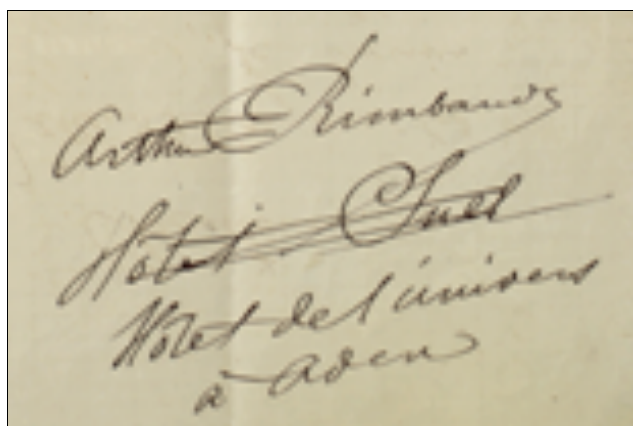 Arthur Rimbaud
Hôtel Suel
Hôtel de l'univers
à aden